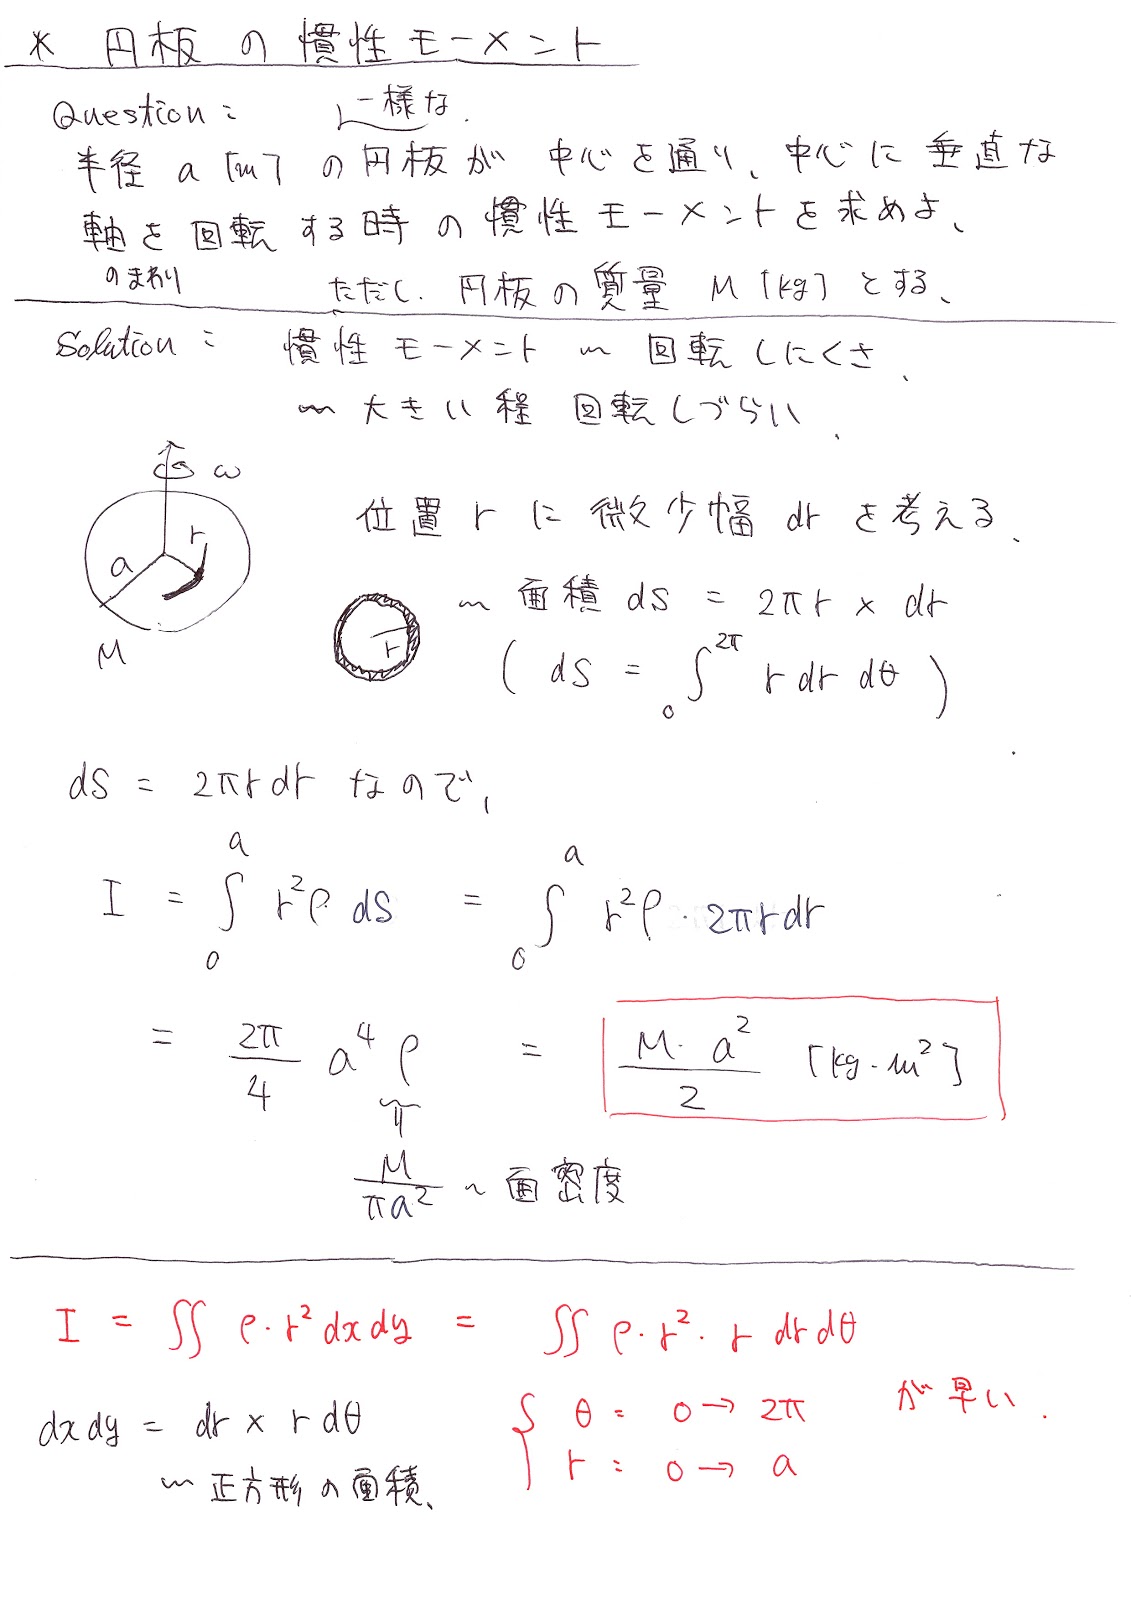 * 円板の慣性モーメント
Question: 一様な
半径 a [m] の円板が 中心を通り、中心に垂直な
軸を回転する時の慣性モーメントを求めよ、
のまわり
ただし、円板の質量 M [kg] とする、
Solution: 慣性モーメント 〜 回転しにくさ、
〜 大きい程 回転しづらい、
ω
r
a
M
位置 r に微少幅 dr を考える、
r
〜 面積 dS = 2πr × dr
( dS = ∫₀^2π r dr dθ )
dS = 2πr dr なので、
I = ∫₀^a r²ρ dS = ∫₀^a r²ρ・2πr dr
= 2π/4 a⁴ ρ = M・a²/2 [kg・m²]
M/πa² 〜 面密度
I = ∬ ρ・r² dx dy = ∬ ρ・r²・r dr dθ
dx dy = dr × r dθ
{ θ : 0 → 2π が早い.
r : 0 → a
〜 正方形の面積、